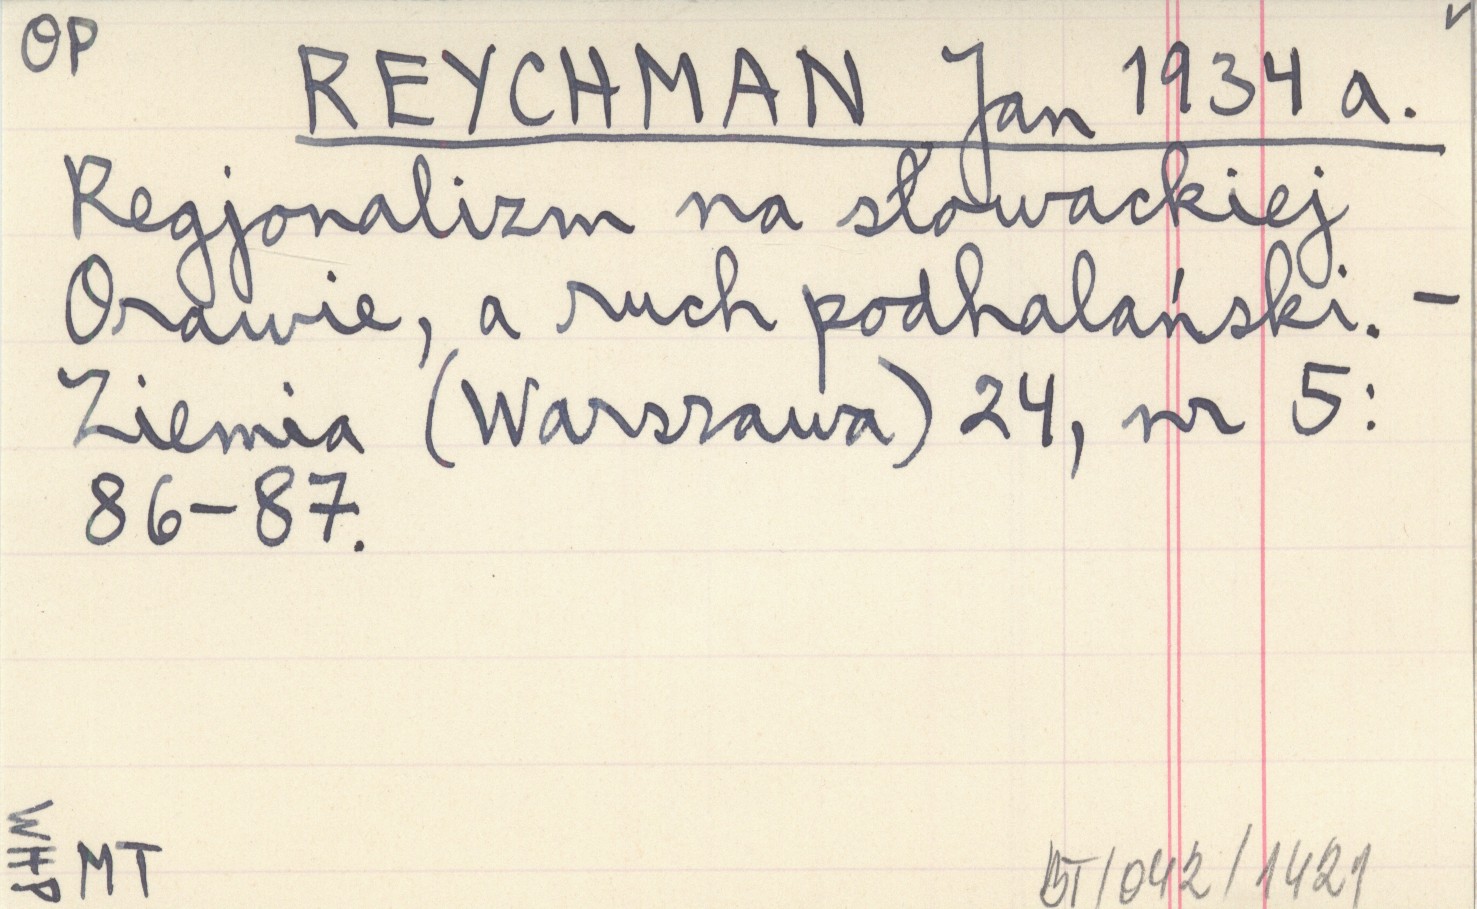 OP
REYCHMAN Jan 1934 a.
Regjonalizm na słowackiej
Orawie, a ruch podhalański. –
Ziemia (Warszawa) 24, nr 5:
86–87.
WHP
MT
BT/042/1421